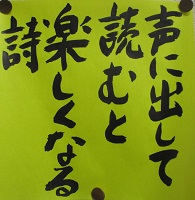 声に出して
読むと
楽しくなる
詩